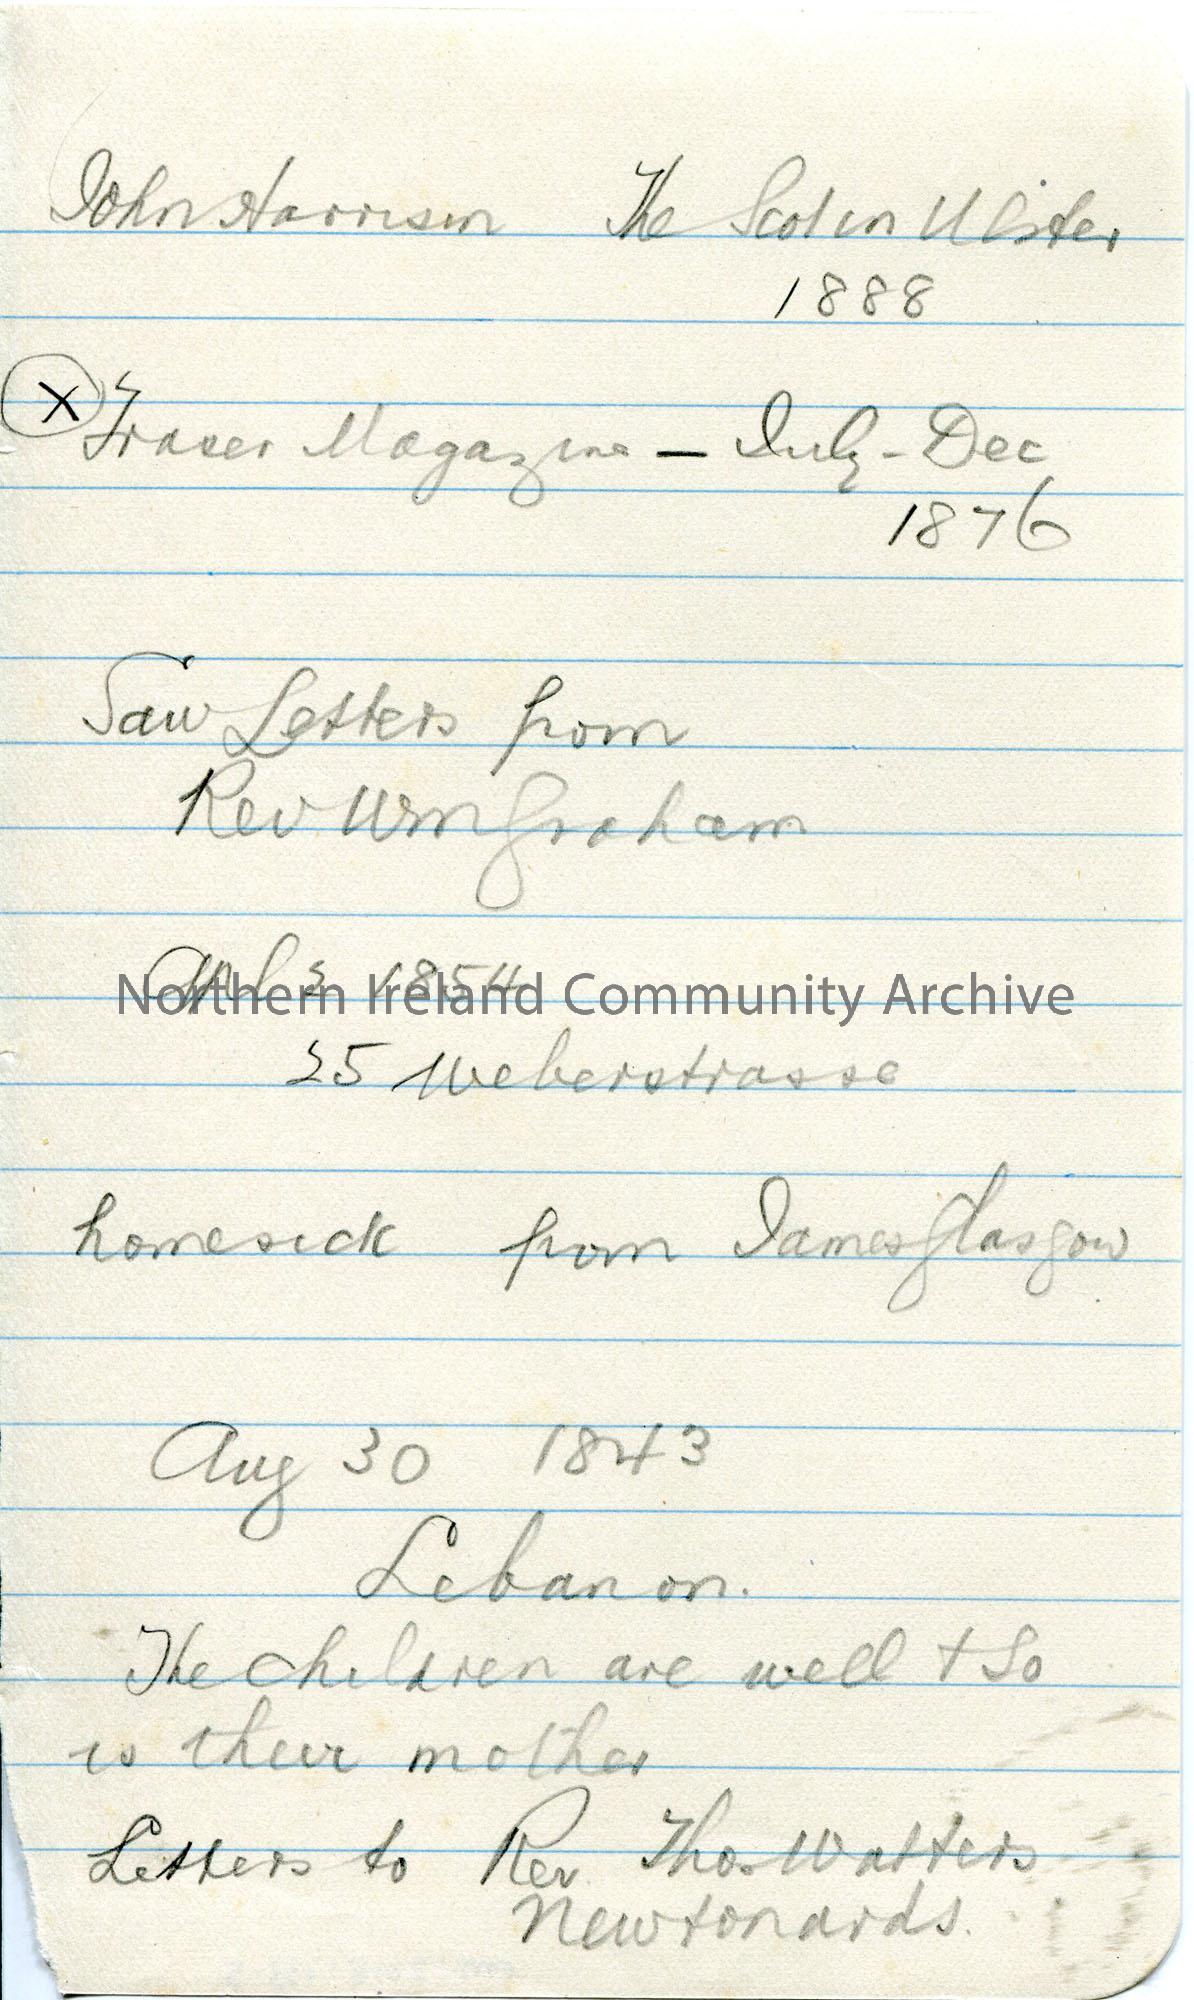 John Harrison The Scot in Ulster
1888
X Fraser Magazine — July - Dec
1876
Saw Letters from
Rev Wm Graham
1854
Northern Ireland Community Archive
25 Weberstrasse
homesick from James Glasgow
Aug 30 1843
Lebanon.
The children are well + So
is their mother
Letters to Rev. Thos. Watters
Newtonards.